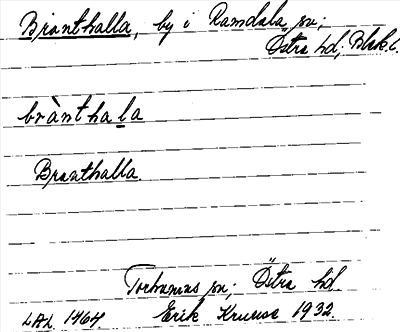 Branthalla, by i Ramdala sn;
Östra hd; Blek.l.
brànthala
Branthalla.
Torhamns sn; Östra hd.
LAL 1464. Erik Kruuse 1932.